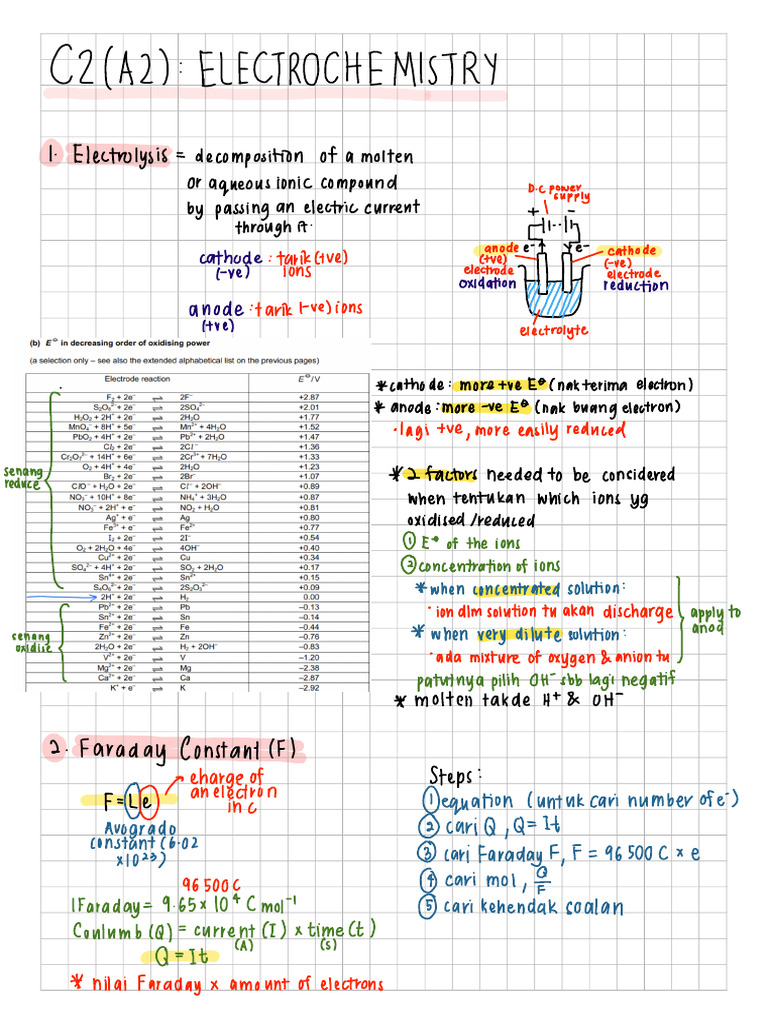 C2(A2): ELECTROCHEMISTRY
1. Electrolysis = decomposition of a molten
or aqueous ionic compound
by passing an electric current
through it.
cathode : tarik (+ve)
(-ve) ions
anode : tarik (-ve) ions
(+ve)
D.C power
supply
+ -
anode e- e- cathode
(+ve) (-ve)
electrode electrode
oxidation reduction
electrolyte
(b) E⦵ in decreasing order of oxidising power
(a selection only – see also the extended alphabetical list on the previous pages)
Electrode reaction E⦵/V
F₂ + 2e⁻ ⇌ 2F⁻ +2.87
S₂O₈²⁻ + 2e⁻ ⇌ 2SO₄²⁻ +2.01
H₂O₂ + 2H⁺ + 2e⁻ ⇌ 2H₂O +1.77
MnO₄⁻ + 8H⁺ + 5e⁻ ⇌ Mn²⁺ + 4H₂O +1.52
PbO₂ + 4H⁺ + 2e⁻ ⇌ Pb²⁺ + 2H₂O +1.47
Cl₂ + 2e⁻ ⇌ 2Cl⁻ +1.36
Cr₂O₇²⁻ + 14H⁺ + 6e⁻ ⇌ 2Cr³⁺ + 7H₂O +1.33
O₂ + 4H⁺ + 4e⁻ ⇌ 2H₂O +1.23
Br₂ + 2e⁻ ⇌ 2Br⁻ +1.07
ClO⁻ + H₂O + 2e⁻ ⇌ Cl⁻ + 2OH⁻ +0.89
NO₃⁻ + 10H⁺ + 8e⁻ ⇌ NH₄⁺ + 3H₂O +0.87
NO₃⁻ + 2H⁺ + e⁻ ⇌ NO₂ + H₂O +0.81
Ag⁺ + e⁻ ⇌ Ag +0.80
Fe³⁺ + e⁻ ⇌ Fe²⁺ +0.77
I₂ + 2e⁻ ⇌ 2I⁻ +0.54
O₂ + 2H₂O + 4e⁻ ⇌ 4OH⁻ +0.40
Cu²⁺ + 2e⁻ ⇌ Cu +0.34
SO₄²⁻ + 4H⁺ + 2e⁻ ⇌ SO₂ + 2H₂O +0.17
Sn⁴⁺ + 2e⁻ ⇌ Sn²⁺ +0.15
S₄O₆²⁻ + 2e⁻ ⇌ 2S₂O₃²⁻ +0.09
2H⁺ + 2e⁻ ⇌ H₂ 0.00
Pb²⁺ + 2e⁻ ⇌ Pb –0.13
Sn²⁺ + 2e⁻ ⇌ Sn –0.14
Fe²⁺ + 2e⁻ ⇌ Fe –0.44
Zn²⁺ + 2e⁻ ⇌ Zn –0.76
2H₂O + 2e⁻ ⇌ H₂ + 2OH⁻ –0.83
V²⁺ + 2e⁻ ⇌ V –1.20
Mg²⁺ + 2e⁻ ⇌ Mg –2.38
Ca²⁺ + 2e⁻ ⇌ Ca –2.87
K⁺ + e⁻ ⇌ K –2.92
senang
reduce
senang
oxidise
* cathode : more +ve E⦵ (nak terima electron)
* anode : more -ve E⦵ (nak buang electron)
• lagi +ve, more easily reduced
* 2 factors needed to be considered
when tentukan which ions yg
oxidised/reduced
① E⦵ of the ions
② concentration of ions
* when concentrated solution:
• ion dlm solution tu akan discharge
* when very dilute solution:
• ada mixture of oxygen & anion tu
apply to
anod
patutnya pilih OH⁻ sbb lagi negatif
* molten takde H⁺ & OH⁻
2. Faraday Constant (F)
F = Le
charge of
an electron
in C
Avogrado
constant (6.02
x10²³)
96 500 C
1 Faraday = 9.65 x 10⁴ C mol⁻¹
Coulumb (Q) = current (I) x time (t)
(A) (s)
Q = It
* nilai Faraday x amount of electrons
Steps:
① equation (untuk cari number of e⁻)
② cari Q, Q = It
③ cari Faraday F, F = 96 500 C x e
④ cari mol, Q/F
⑤ cari kehendak soalan